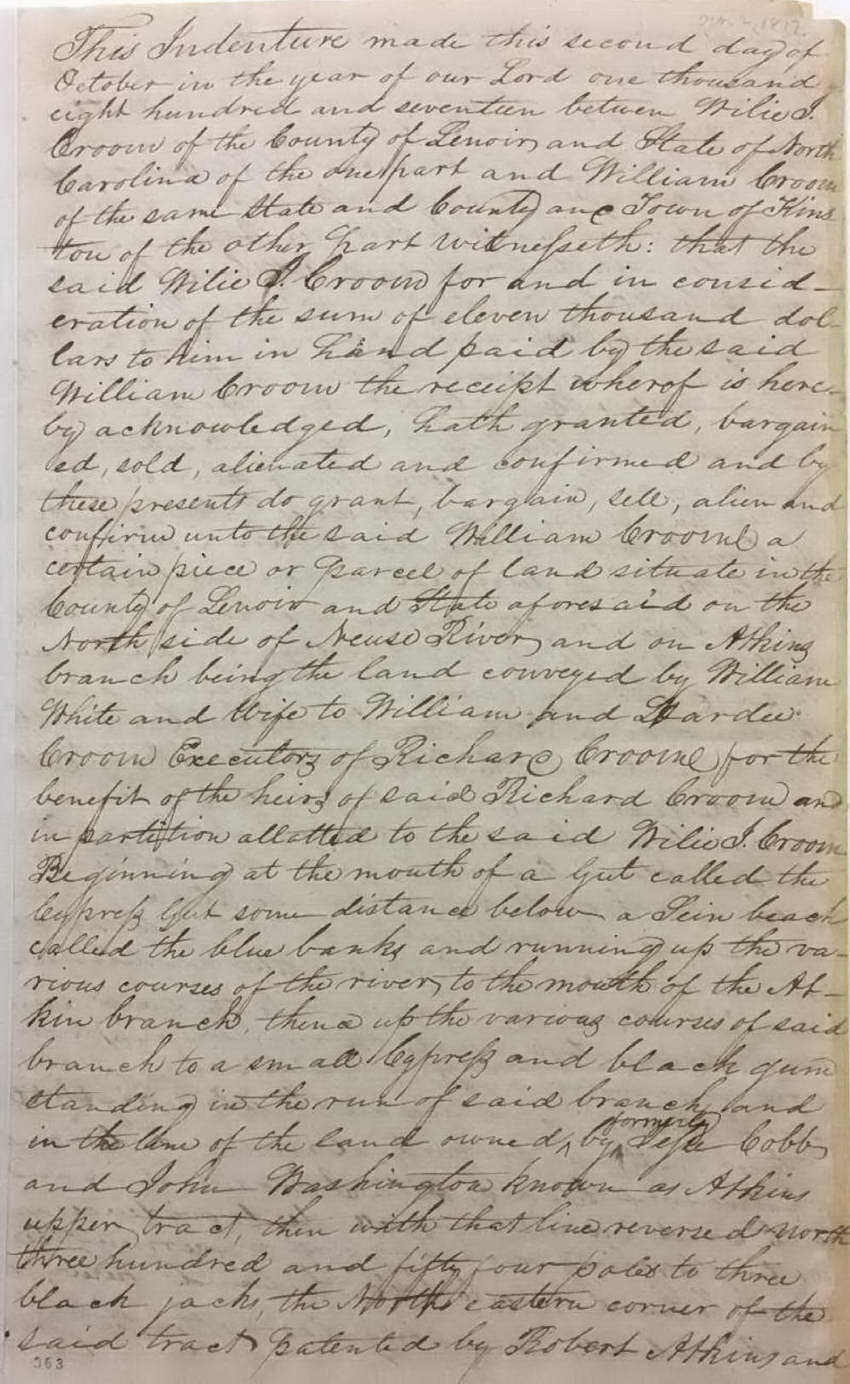 This Indenture made this second day of
October in the year of our Lord one thousand
eight hundred and seventeen between Wilie J.
Croom of the County of Lenoir and State of North
Carolina of the one part and William Croom
of the same State and County and Town of Kins
ton of the other part witnesseth: that the
said Wilie J. Croom for and in consid-
eration of the sum of eleven thousand dol-
lars to him in hand paid by the said
William Croom the receipt wherof is here-
by acknowledged, hath granted, bargain
ed, sold, alienated and confirmed and by
these presents do grant, bargain, sell, alien and
confirm unto the said William Croom a
certain piece or parcel of land situate in the
County of Lenoir and State aforesaid on the
North side of Neuse River and on Atkins
branch being the land conveyed by William
White and Wife to William and Hardee
Croom Executors of Richard Croom for the
benefit of the heirs of said Richard Croom and
in partition allatted to the said Wilie J. Croom
Beginning at the mouth of a Gut called the
Cypress Gut some distance below a Sein beach
called the blue banks and running up the va-
rious courses of the river to the mouth of the At-
kin branch, thence up the various courses of said
branch to a small Cypress and black gum
standing in the run of said branch and
in the line of the land owned ^ formerly by Jesse Cobb
and John Washington known as Atkins
upper tract, then with that line reversed north
three hundred and fifty four poles to three
black jacks, the North eastern corner of the
said tract patented by Robert Atkins and
363